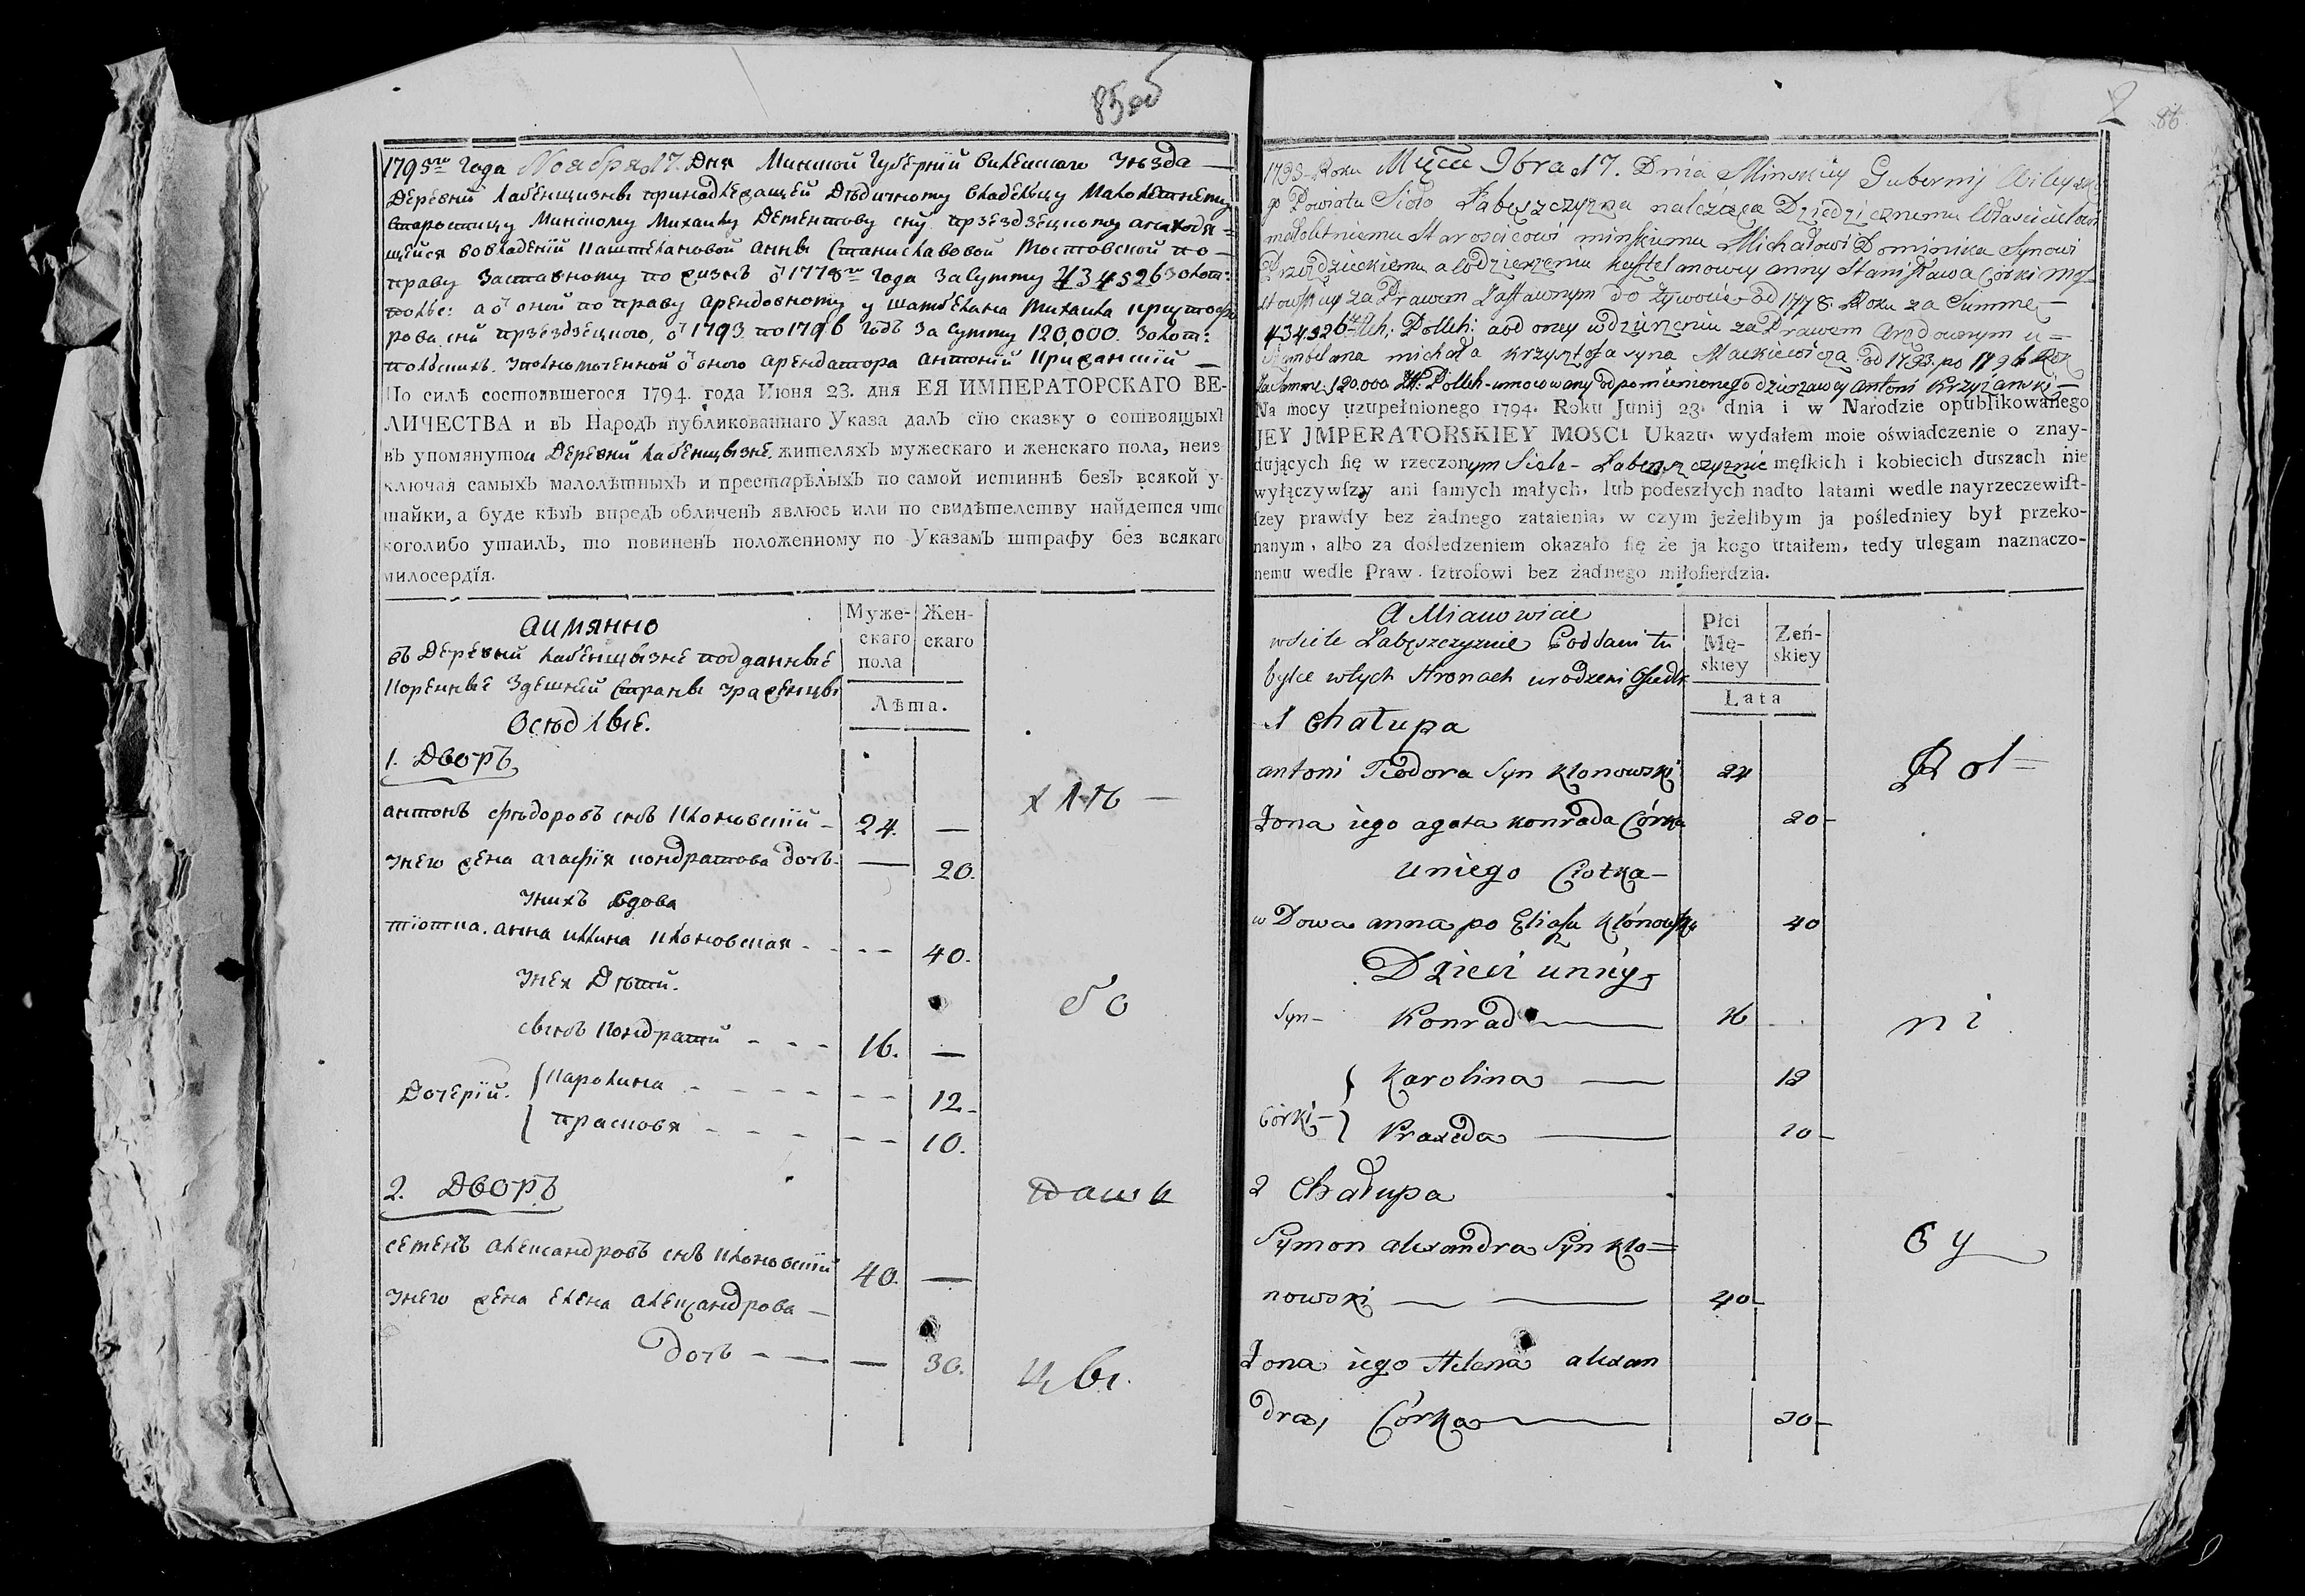 85об
1795го Года Ноября 17. Дня Минской Губернїй Вилейского Уѣзда —
Деревнй Лабенщизны принадлежащей Дѣдичному владельцу Малолетнему
старостицу Минскому Михаилу Дементову сну Прзездзецкому а находя=
щейся вовладенїй Каштелановой Анны Станиславовой Мостовской по-
праву Заставному по жизнь о 1778го Года За Сумму 434526 Золот:
полье: а о оной по праву арендовному у шамбеляна Михаила криштофо
рова сна Прзездзецкого, о 1793. по 1796 годъ За Сумму 120,000. Золот:
польскихъ. уполномоченной о оного арендатора антонїй Крижанскїй —
По силѣ состоявшегося 1794. года Июня 23. дня ЕЯ ИМПЕРАТОРСКАГО ВЕ-
ЛИЧЕСТВА и въ Народъ публикованнаго Указа далъ сїю сказку о состоящыхъ
въ упомянутой Деревнй Лабенщызне. жителяхъ мужескаго и женскаго пола, неиз
ключая самыхъ малолѣтныхъ и престарѣлыхъ по самой истиннѣ безъ всякой у-
тайки, а буде кѣмъ впредъ обличенъ явлюсь или по свидѣтелству найдется что
коголибо утаилъ, то повиненъ положенному по Указамъ штрафу без всякаго
милосердїя.
аимянно
въ Деревнй Лабенщызне подданные
Коренные Здешней Страны Уроженцы
Оседлые.
Муже-
скаго
пола
Жен-
скаго
Лѣта.
1. Дворъ
антонъ фѣдоровъ снъ Клоновскїй — 24. —
унего жена агафїя кондратова дочь — — 20.
унихъ вдова
тїотка. анна илина клоновская - - - 40.
унея Дѣтй.
сынъ Кондратй - - - 16. —
Дочерїй. Каролина - - - - 12.
Прасковя - - - - 10.
2. Дворъ
семенъ александровъ снъ клоновскїй 40. —
унего жена елена александрова —
дочь — — — 30.
бо
цы.
2
86
1795 Roku Mięca 9bra 17. Dnia Minskiey Gubernij Wileyskie
go Powiatu Sioło Łabęszczyzna należąca Dziedzicznemu Włascicielowi
małoletniemu Starościcowi minskiemu Michałowi Dominika Synowi
Przezdzieckiemu a w dzierzeniu kasztelanowey anny Stanisława Córki Mos
towskiey za Prawem Zastawnym do żywocie od 1778. Roku za Summę —
434526 Złch: Polleh: a od oney w dzierzeniu za Prawem Arędownym u =
Szambelana michała krzysztofa syna Mackiewicza od 1793. po 1796 Rok
za Summę 120,000 Zł: Polleh - umocowany od pomienionego dzierzawcy Antoni Krzyżanski —
Na mocy uzupełnionego 1794. Roku Junij 23. dnia i w Narodzie opublikowanego
JEY JMPERATORSKIEY MOSCI Ukazu, wydałem moie oświadczenie o znay-
dujących się w rzeczonym Siele - Łabęszczyznie męskich i kobiecich duszach nie
wyłączywszy ani samych małych, lub podeszłych nadto latami wedle nayrzeczewist-
szey prawdy bez żadnego zataienia, w czym jeżelibym ja pośledniey był przeko-
nanym, albo za dośledzeniem okazało się że ja kogo utaiłem, tedy ulegam naznaczo-
nemu wedle Praw sztrofowi bez żadnego miłosierdzia.
A Mianowicie
wsiele Łabęszczyznie Poddani tu
bylce wtych Stronach urodzeni Osiedli
Płci
Mę-
skiey
Zeń-
skiey
Lata
1 Chałupa
antoni Teodora Syn Klonowski 24
Żona iego agata konrada Córka 20 —
uniego Ciotka —
wDowa anna po Eliaszu Klonowska 40
Dzieci unniey
Syn — Konrad — 16
Karolina — 12
Córki — Praxeda — 10 —
2 Chałupa
Symon alexandra Syn Klo=
nowski — — 40
Żona iego Helena alexan
dra, Córka — 30 —
Rol =
ni
Cy